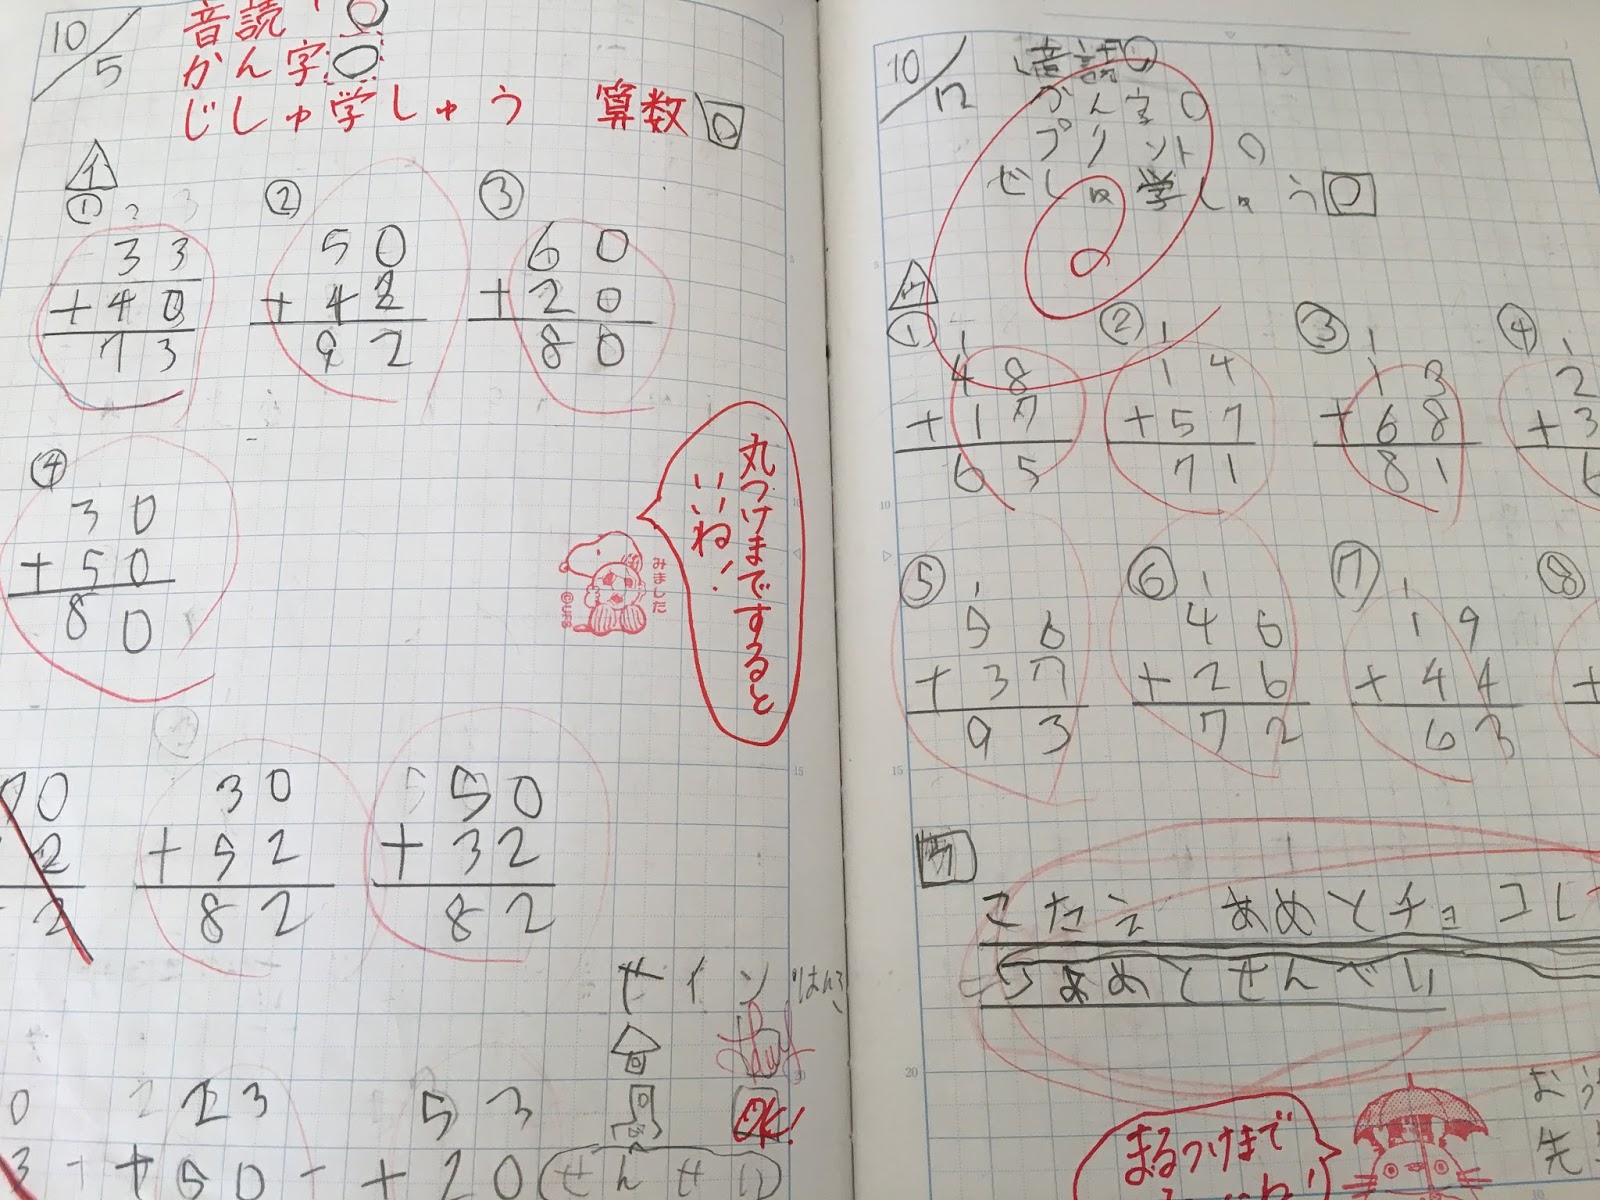 10/5
音読 〇
かん字 〇
じしゅ学しゅう 算数 〇
① ② ③
33 50 60
+40 +42 +20
73 92 80
④
30
+50
80
丸つけまですると
いいね!
みました
©UFS
30 550
+52 +32
82 82
サイン
OK!
23 53
+50 +20
せんせい
10/12
音読 〇
かん字 〇
プリント 〇
ぜしゅ学しゅう 〇
① ② ③ ④
1 1 1 1
48 14 13 2
+17 +57 +68 +3
65 71 81 6
⑤ ⑥ ⑦ ⑧
1 1 1
56 46 19
+37 +26 +44 +
93 72 63
こたえ あめとチョコレ
あめとせんべい
まるつけまで